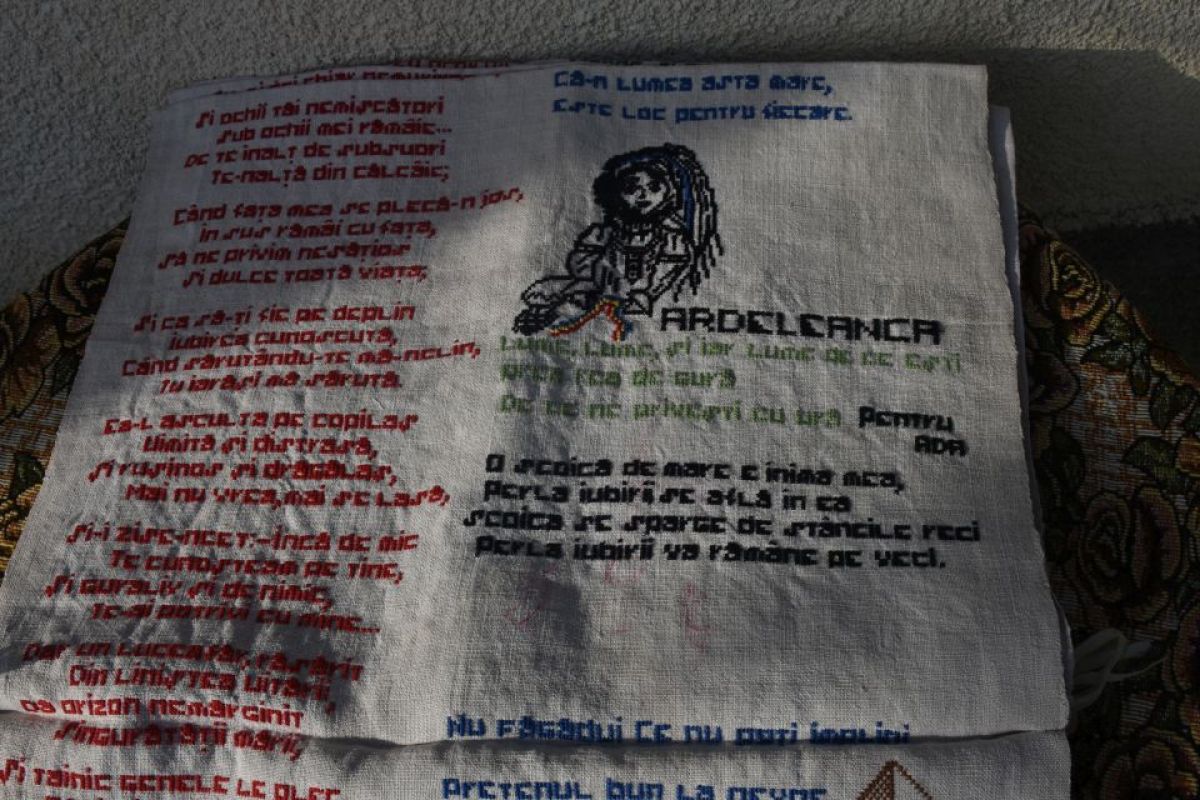 Și ochii tăi nemișcători
Sub ochii mei rămîie...
De te înalț de subsuori
Te-nalță din călcâie;
Când fața mea se plecă-n jos,
În sus rămâi cu fața,
Să ne privim nesățios
Și dulce toată viața;
Și ca să-ți fie pe deplin
Iubirea cunoscută,
Când sărutându-te mă-nclin,
Tu iarăși mă sărută.
Ea-l asculta pe copilaș
Uimită și distrasă,
Și rușinos și drăgălaș,
Mai nu vrea, mai se lasă,
Și-i zise-ncet:-Încă de mic
Te cunoșteam pe tine,
Și guraliv și de nimic,
Te-ai potrivi cu mine...
Dar un Luceafăr, răsărit
Din liniștea uitării,
Dă orizon nemărginit
Singurătății mării;
Și tainic genele le plec
Că-n lumea asta mare,
Este loc pentru fiecare.
ARDELEANCA
Lume, lume, și iar lume de ce ești
area rea de gură
De ce ne privești cu ură
Pentru
ADA
O scoică de mare e inima mea,
Perla iubirii se află în ea
Scoica se sparge de stâncile reci
Perla iubirii va rămâne pe veci.
Nu făgădui ce nu poți împlini
Pretenul bun la nevoe